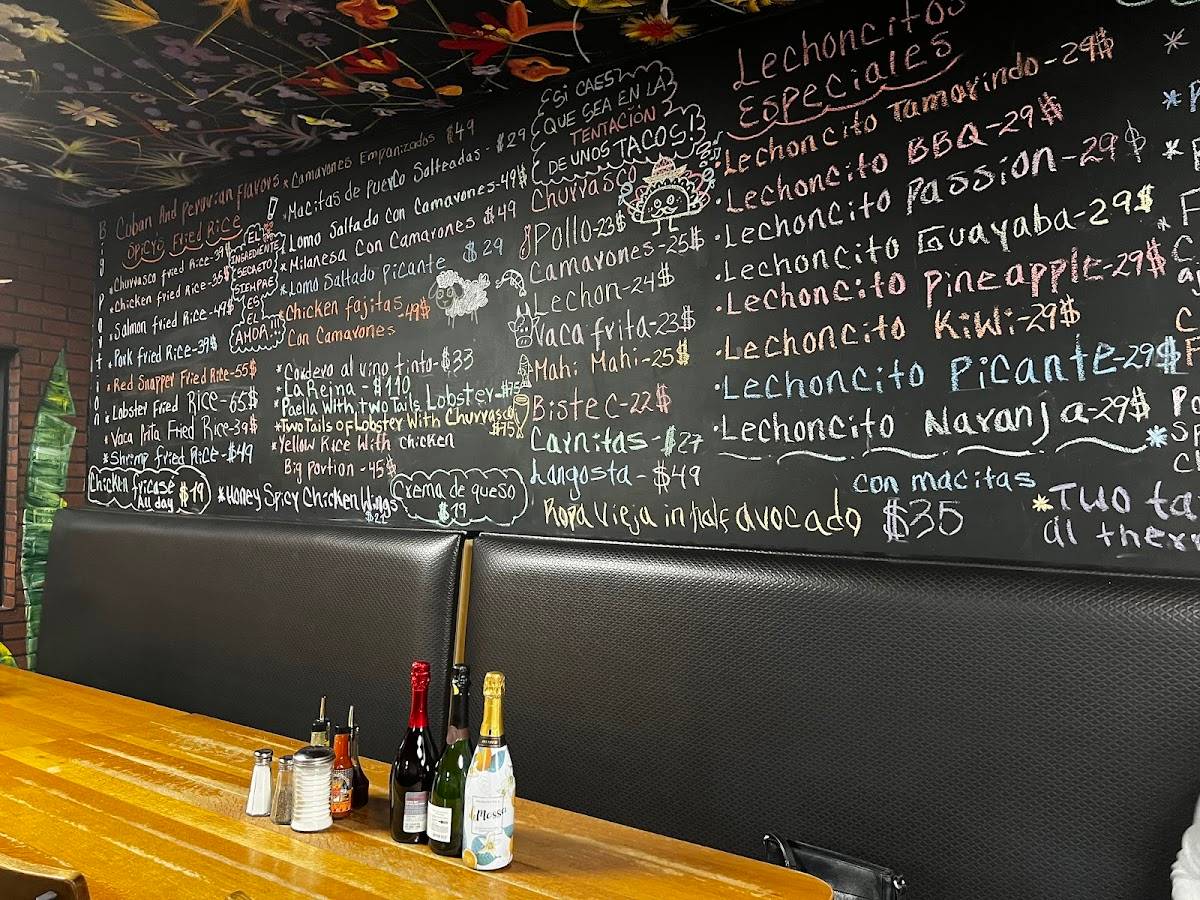 Cuban And Peruvian Flavors
Spicy Fried Rice
* Churrasco fried Rice-39$
* Chicken fried Rice-35$
* Salmon fried Rice-49$
* Pork fried Rice-39$
* Red Snapper Fried Rice-55$
* Lobster Fried Rice-65$
* Vaca Frita Fried Rice-39$
* Shrimp fried Rice-$49
Chicken fricasé $19
All day
EL
INGREDIENTE
SECRETO
SIEMPRE
ES
EL
AMOR!!!
* Camarones Empanizados $49
* Macitas de Puerco Salteadas - $29
* Lomo Saltado Con Camarones-49$
* Milanesa Con Camarones $49
* Lomo Saltado Picante $29
* Chicken fajitas
Con Camarones -49$
* Cordero al vino tinto-$33
* La Reina - $110
Paella With two Tails Lobster-$75
* Two Tails of Lobster With Churrasco
$75
* Yellow Rice With Chicken
Big Portion - 45$
* Honey Spicy Chicken Wings
$22
Crema de queso
$19
¡SI CAES
QUE SEA EN LA
TENTACIÓN
DE UNOS TACOS!
Churrasco
Pollo-23$
Camarones-25$
Lechon-24$
Vaca frita-23$
Mahi Mahi-25$
Bistec-22$
Carnitas-$27
Langosta-$49
Ropa Vieja in half avocado $35
Lechoncitos
Especiales
Lechoncito Tamarindo-29$
· Lechoncito BBQ-29$
· Lechoncito Passion-29$
· Lechoncito Guayaba-29$
· Lechoncito Pineapple-29$
· Lechoncito Kiwi-29$
· Lechoncito Picante-29$
· Lechoncito Naranja-29$
con macitas
* Two ta
al therm